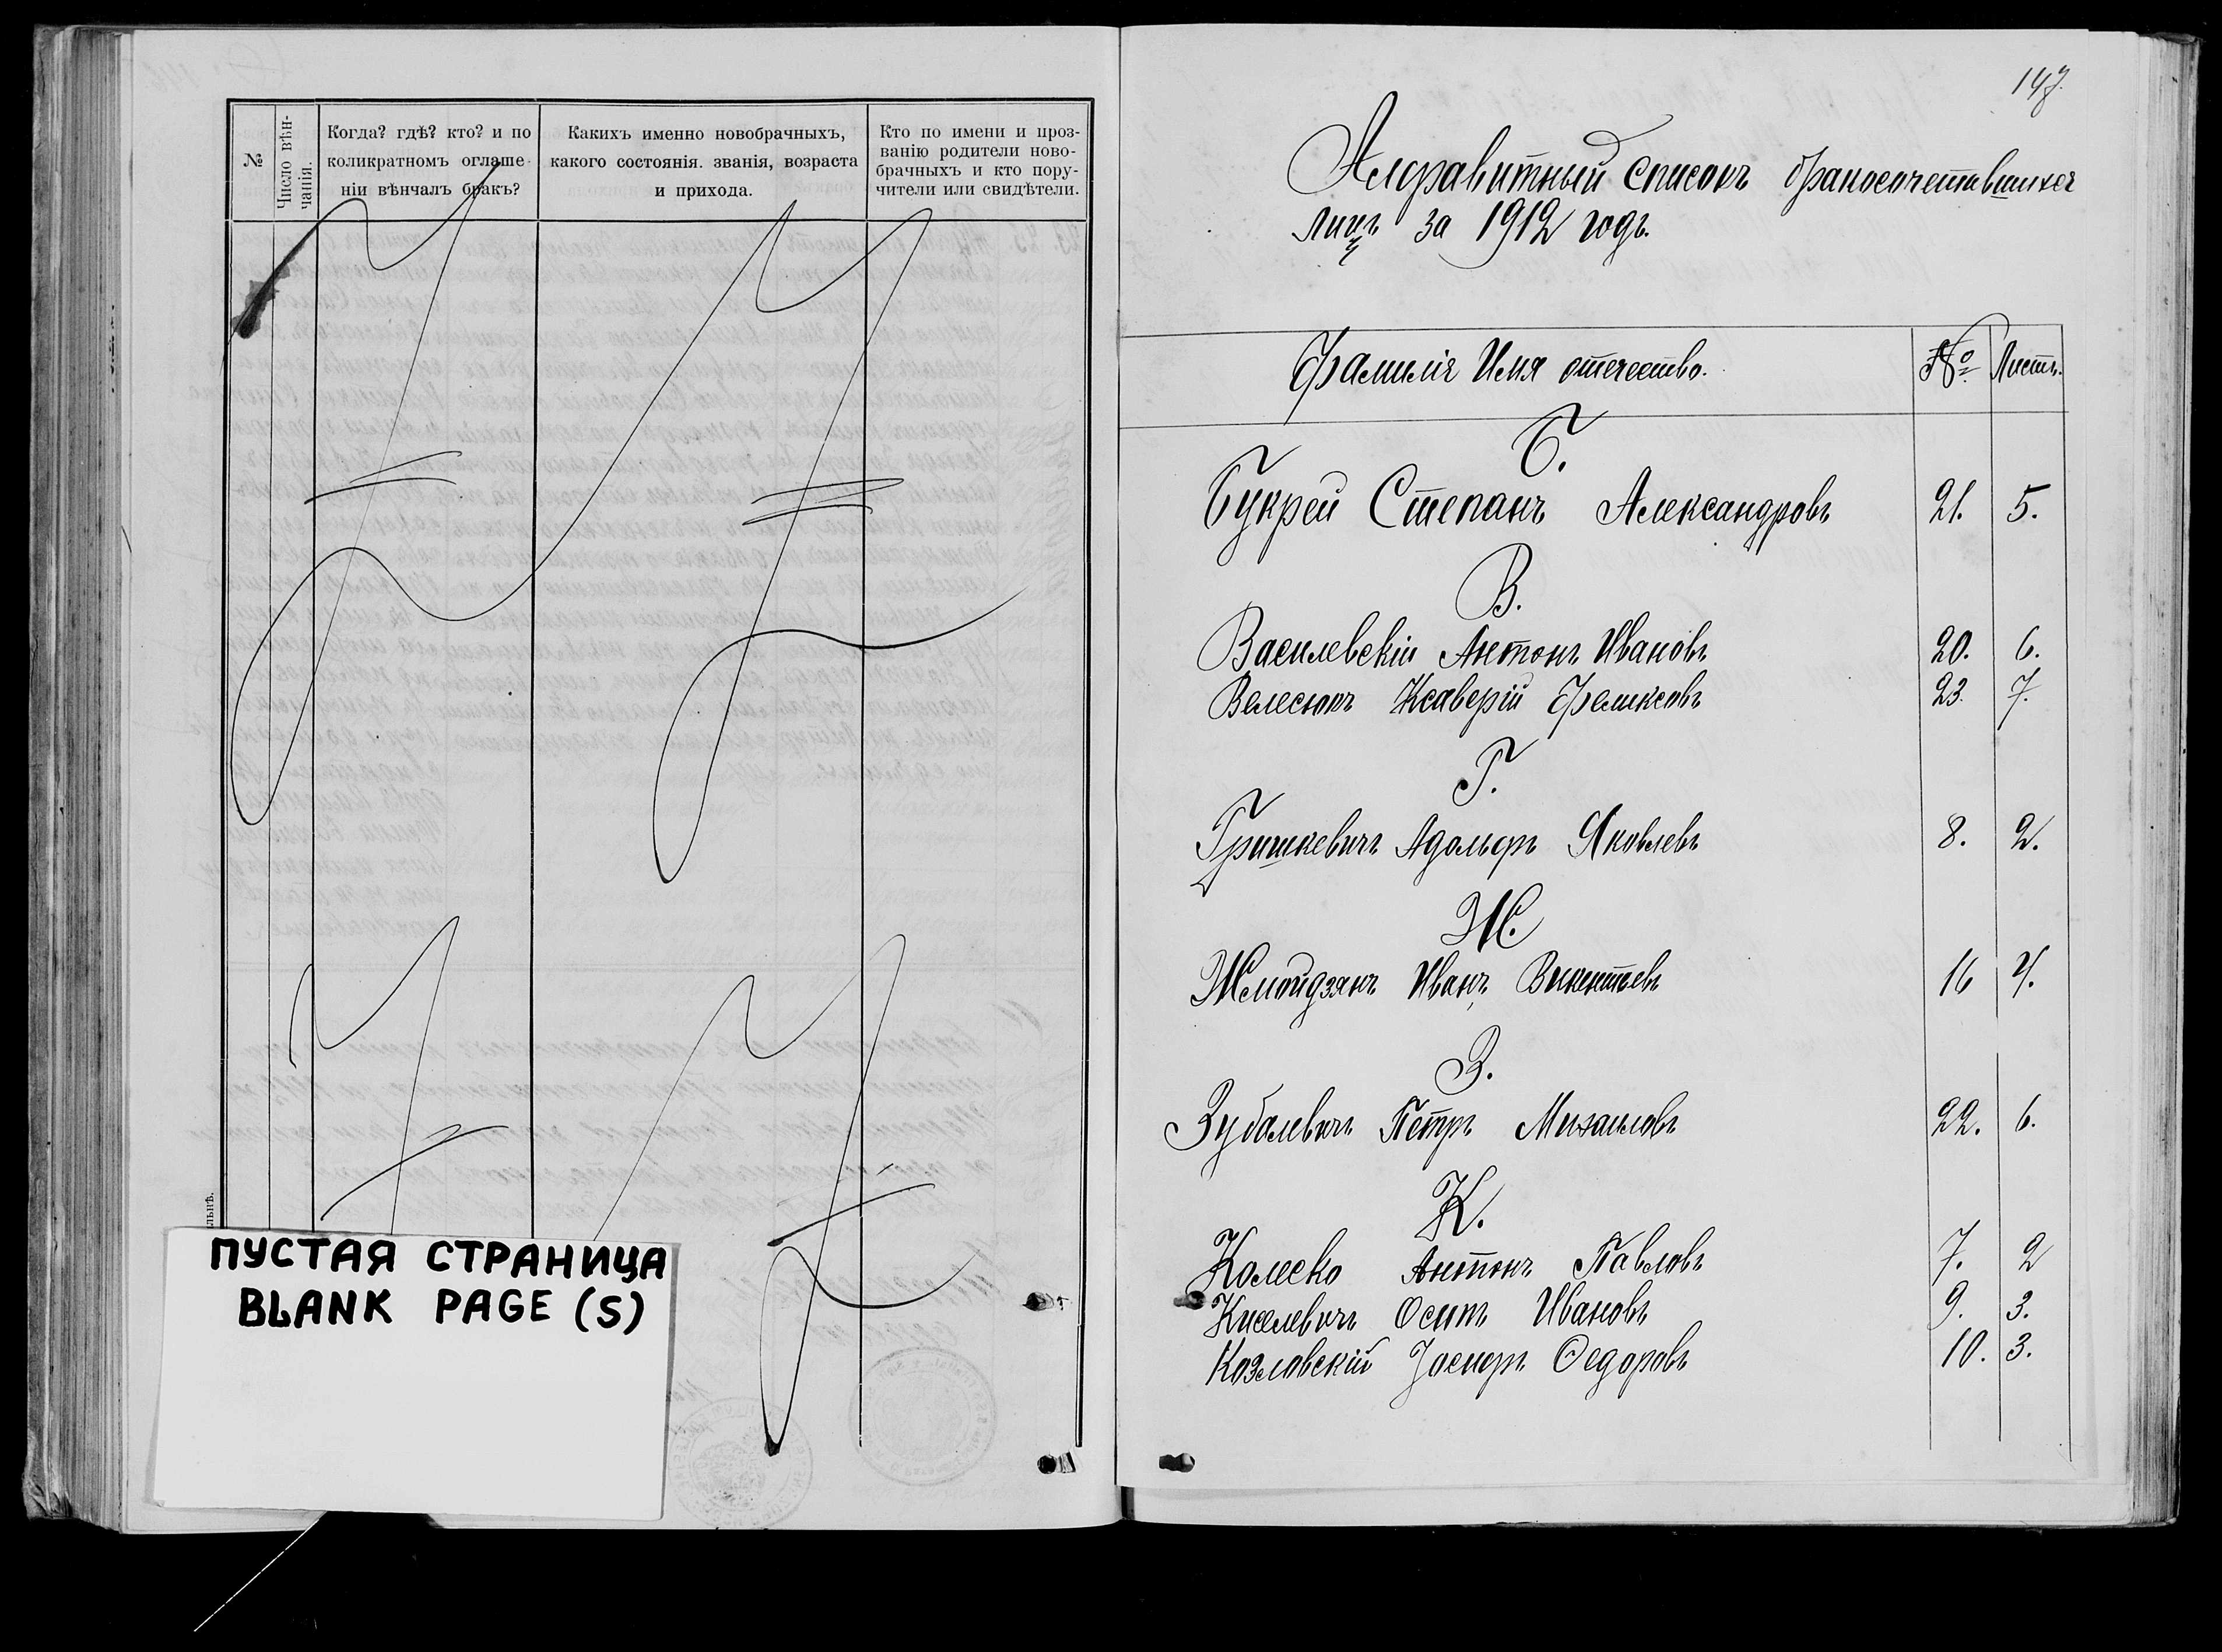 №
Число вѣн-
чанія.
Когда? гдѣ? кто? и по
коликратномъ оглаше-
ніи вѣнчалъ бракъ?
Какихъ именно новобрачныхъ,
какого состоянія. званія, возраста
и прихода.
Кто по имени и проз-
ванію родители ново-
брачныхъ и кто пору-
чители или свидѣтели.
льнѣ.
ПУСТАЯ СТРАНИЦА
BLANK PAGE (S)
147.
Алфавитный списокъ бракосочетавшихся
лицъ за 1912 годъ.
Фамилія Имя отечество. № Листъ.
Б.
Букрей Степанъ Александровъ 21. 5.
В.
Василевскій Антонъ Ивановъ 20. 6.
Велесюкъ Ксаверій Феликсовъ 23. 7.
Г.
Гришкевичъ Адольфъ Яковлевъ 8. 2.
Ж.
Жмойдзянъ Иванъ Викентьевъ 16 4.
З.
Зубалевичъ Петръ Михаиловъ 22. 6.
К.
Колеко Антонъ Павловъ 7. 2
Киселевичъ Осипъ Ивановъ 9. 3.
Козловскій Іосифъ Ѳедоровъ 10. 3.